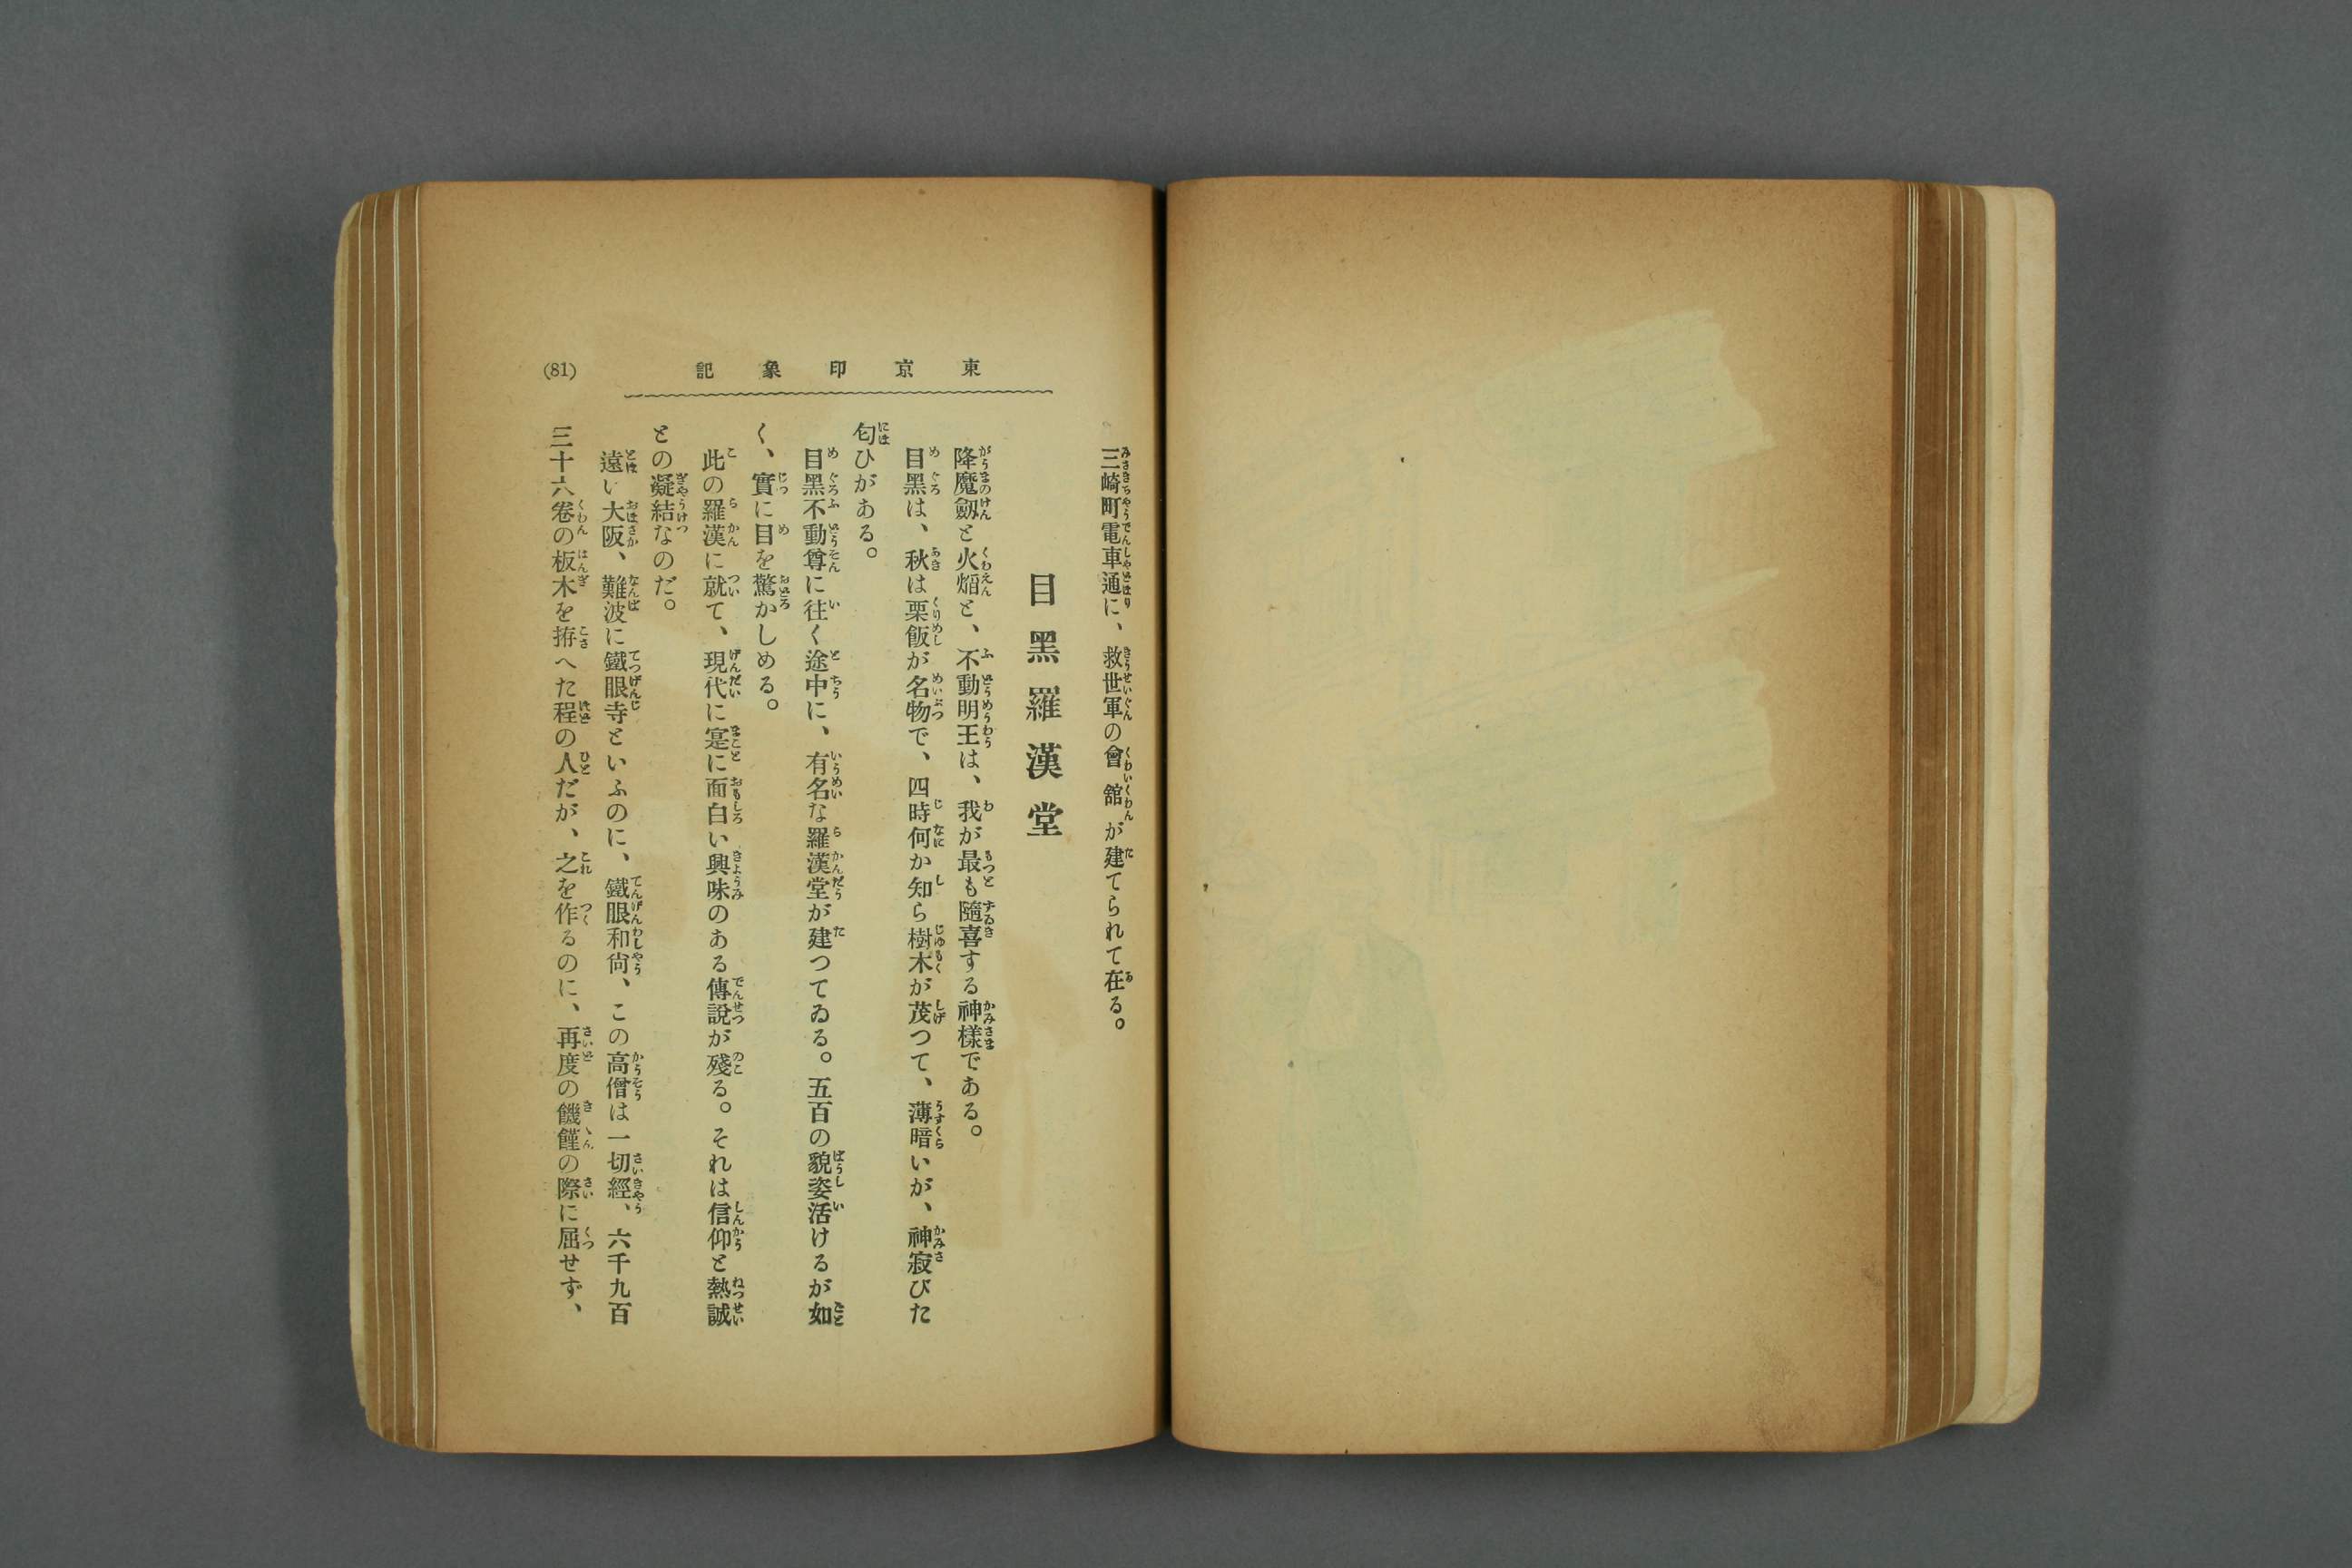 東京印象記
(81)
三崎町電車通に、救世軍の會舘が建てられて在る。
目黑羅漢堂
降魔劔と火熖と、不動明王は、我が最も隨喜する神樣である。
目黑は、秋は栗飯が名物で、四時何か知ら樹木が茂つて、薄暗いが、神寂びた
匂ひがある。
目黑不動尊に往く途中に、有名な羅漢堂が建つてゐる。五百の貌姿活けるが如
く、實に目を驚かしめる。
此の羅漢に就て、現代に寔に面白い興味のある傳說が殘る。それは信仰と熱誠
との凝結なのだ。
遠い大阪、難波に鐵眼寺といふのに、鐵眼和尙、この高僧は一切經、六千九百
三十六卷の板木を拵へた程の人だが、之を作るのに、再度の饑饉の際に屈せず、